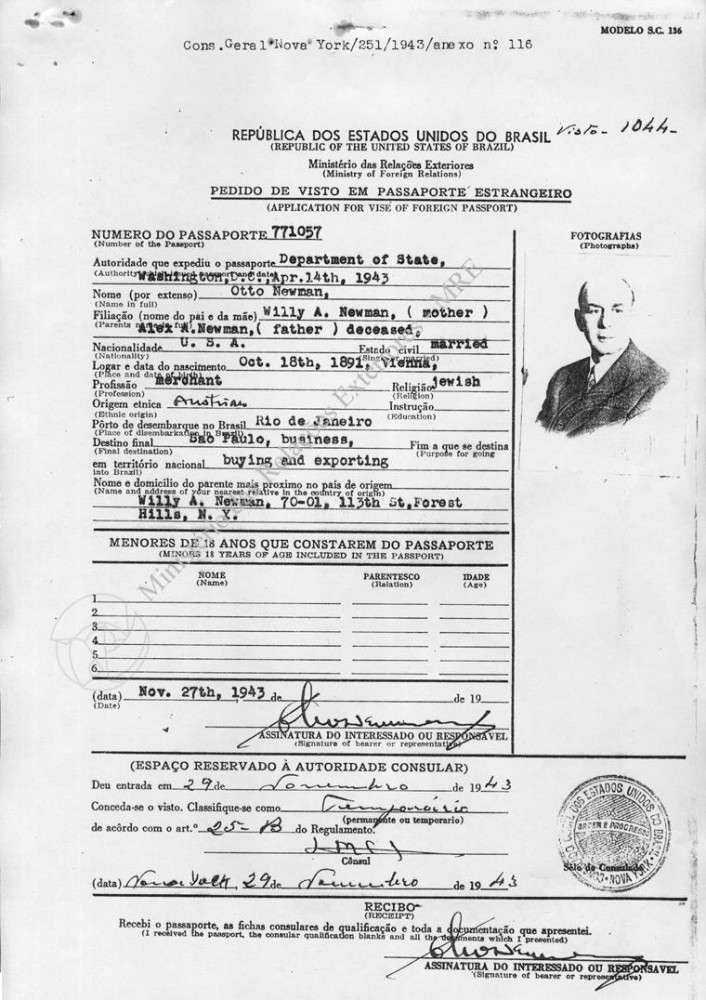 MODELO S.C. 136
Cons.Geral Nova York/251/1943/anexo nº 116
Visto- 1044-
REPÚBLICA DOS ESTADOS UNIDOS DO BRASIL
(REPUBLIC OF THE UNITED STATES OF BRAZIL)
Ministério das Relações Exteriores
(Ministry of Foreign Relations)
PEDIDO DE VISTO EM PASSAPORTE ESTRANGEIRO
(APPLICATION FOR VISE OF FOREIGN PASSPORT)
FOTOGRAFIAS
(Photographs)
NUMERO DO PASSAPORTE 771057
(Number of the Passport)
Autoridade que expediu o passaporte Department of State,
(Authority which issued passport and date) Washington,D.C.,Apr.14th, 1943
Nome (por extenso) Otto Newman,
(Name in full)
Filiação (nome do pai e da mãe) Willy A. Newman, ( mother )
(Parents names in full) Alex A.Newman,( father ) deceased,
Nacionalidade U. S. A. Estado civil married
(Nationality) (Single or married)
Logar e data do nascimento Oct. 18th, 1891, Vienna,
(Place and date of birth)
Profissão merchant Religião jewish
(Profession) (Religion)
Origem etnica Austrian Instrução
(Ethnic origin) (Education)
Pôrto de desembarque no Brasil Rio de Janeiro
(Place of disembarkation in Brazil)
Destino final Sao Paulo, business, Fim a que se destina
(Final destination) (Purpose for going
em território nacional buying and exporting
into Brazil)
Nome e domicilio do parente mais proximo no país de origem
(Name and address of your nearest relative in the country of origin)
Willy A. Newman, 70-01, 113th St,Forest
Hills, N. Y.
MENORES DE 18 ANOS QUE CONSTAREM DO PASSAPORTE
(MINORS 18 YEARS OF AGE INCLUDED IN THE PASSPORT)
NOME PARENTESCO IDADE
(Name) (Relation) (Age)
1
2
3
4
5
6
(data) Nov. 27th, 1943 de de 19
(Date)
ASSINATURA DO INTERESSADO OU RESPONSAVEL
(Signature of bearer or representative)
(ESPAÇO RESERVADO À AUTORIDADE CONSULAR)
Deu entrada em 29 de Novembro de 1943
Conceda-se o visto. Classifique-se como Temporário
(permanente ou temporario)
de acôrdo com o art.º 25-B do Regulamento.
Cônsul
Sêlo do Consulado
(data) Nova York, 29 de Novembro de 1943
RECIBO
(RECEIPT)
Recebi o passaporte, as fichas consulares de qualificação e toda a documentação que apresentei.
(I received the passport, the consular qualification blanks and all the documents which I presented)
ASSINATURA DO INTERESSADO OU RESPONSAVEL
(Signature of bearer or representative)